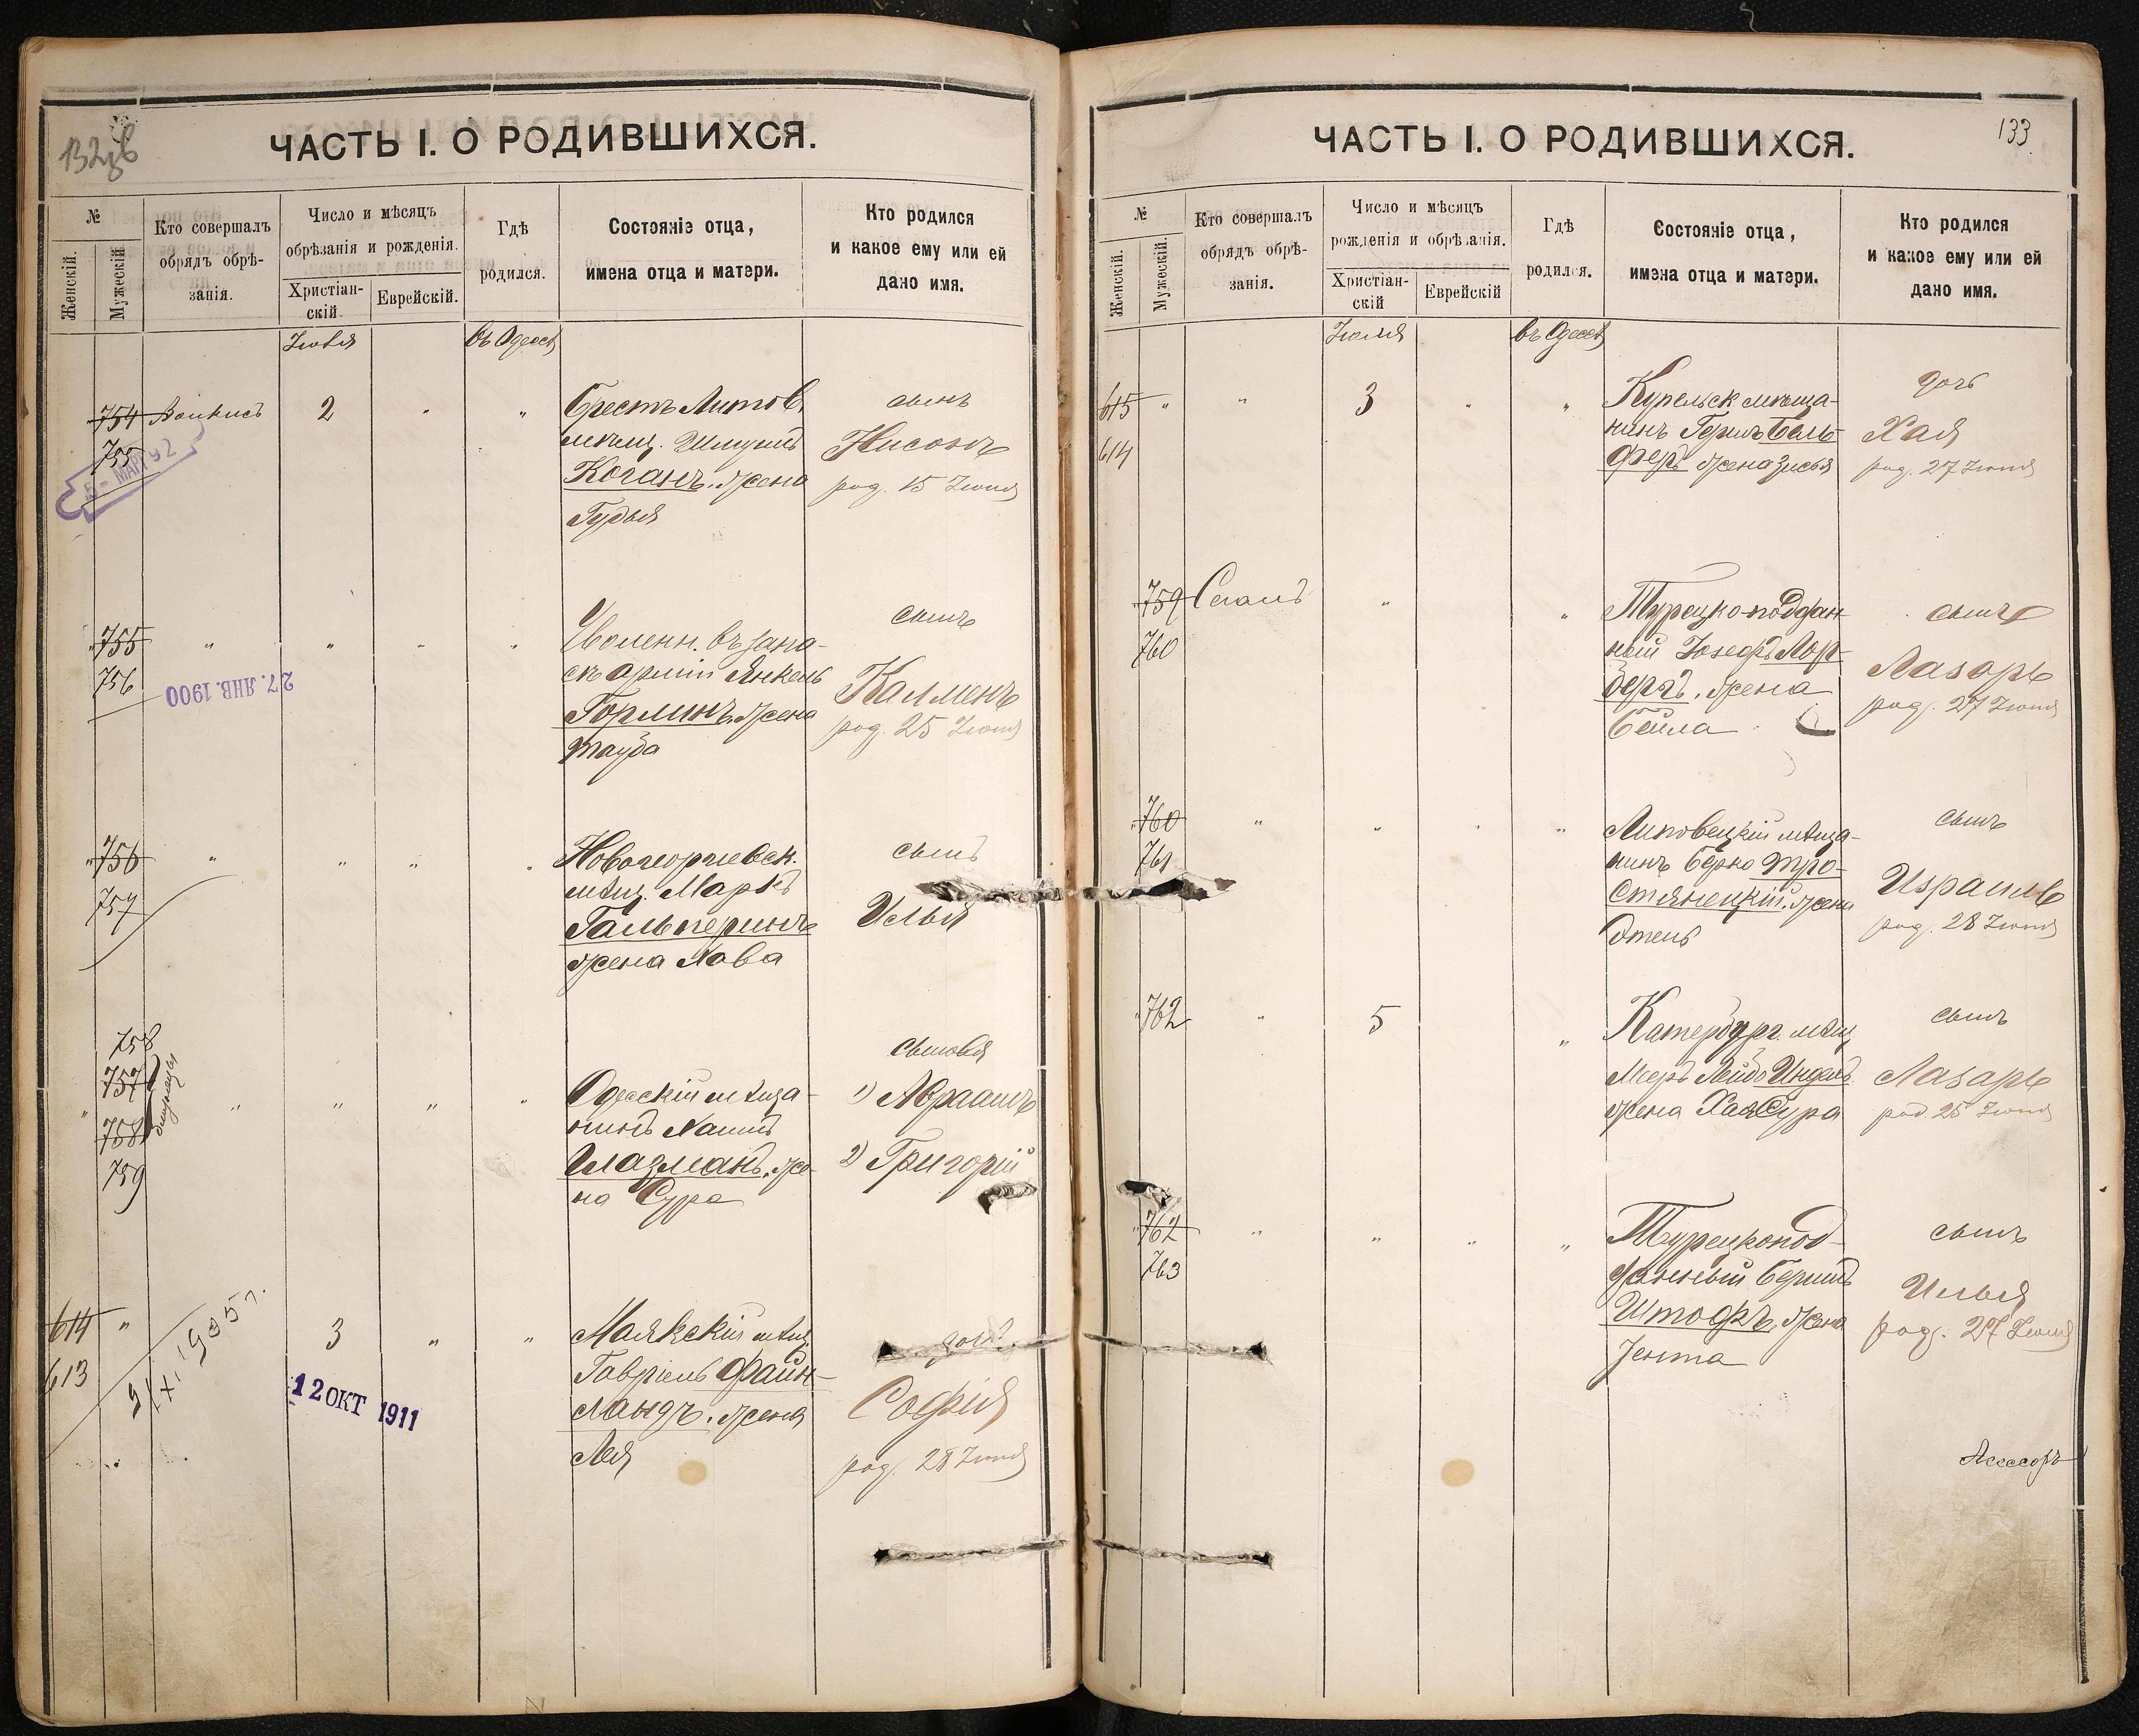 132об
ЧАСТЬ I. О РОДИВШИХСЯ.
№
Женскій.
Мужескій
Кто совершалъ
обрядъ обрѣ-
занія.
Число и мѣсяцъ
обрѣзанія и рожденія.
Христіан-
скій.
Еврейскій.
Гдѣ
родился.
Состояніе отца,
имена отца и матери.
Кто родился
и какое ему или ей
дано имя.
Іюля
въ Одессѣ
754
755
2
„
„
Брестъ Литов.
мѣщ.
Коганъ. жена
Гудья
сынъ
Нисонъ
род. 15 Іюня
5 - МАР. 92
„ 755
756
„
„
„
„
Уволенн. въ запа-
съ арміи Янкель
Горлинъ. жена
Тауба
сынъ
Калменъ
род. 25 Іюня
27. ЯНВ. 1900
„ 756
757
„
„
„
„
Новогеоргіевск.
мѣщ. Маркъ
Гальперинъ
жена Хова
сынъ
Илья
758
757
„ 758
759
близнецы
„
„
„
„
Одесскій мѣща-
нинъ Хаимъ
Глазманъ, же-
на Сура
сыновья
1) Авраамъ
2) Григорій
614 „
613
9/XI 1905 г.
3
„
„
Маякскій мѣщ.
Гавріель Файн-
ландъ. жена
Лея
дочь
Софія
род. 28 Іюня
12 ОКТ 1911
133
ЧАСТЬ I. О РОДИВШИХСЯ.
№
Женскій.
Мужескій.
Кто совершалъ
обрядъ обрѣ-
занія.
Число и мѣсяцъ
рожденія и обрѣзанія.
Христіан-
скій
Еврейскій
Гдѣ
родился.
Состояніе отца,
имена отца и матери.
Кто родился
и какое ему или ей
дано имя.
Іюля
въ Одессѣ
615 „
614
„
3
„
„
мѣща-
нинъ Гершъ Бель-
феръ жена Зисья
дочь
Хая
род. 27 Іюня
„ 759
760
„
„
Турецко-поддан-
ный Іозефъ Лор-
бергъ. жена
Бейла
сынъ
Лазарь
род. 27 Іюня
„ 760
761
„
„
„
„
Липовецкій мѣща-
нинъ Берко Тро-
стянецкій. жена
сынъ
Израиль
род. 28 Іюня
„ 762
„
5
„
Катербург. мѣщ.
жена Хая Сура
сынъ
Лазарь
род. 25 Іюня
„ 762
763
„
„
„
„
Турецкопод-
данный Беришъ
Штофъ. жена
Іента
сынъ
Илья
род. 27 Іюня
Асессоръ